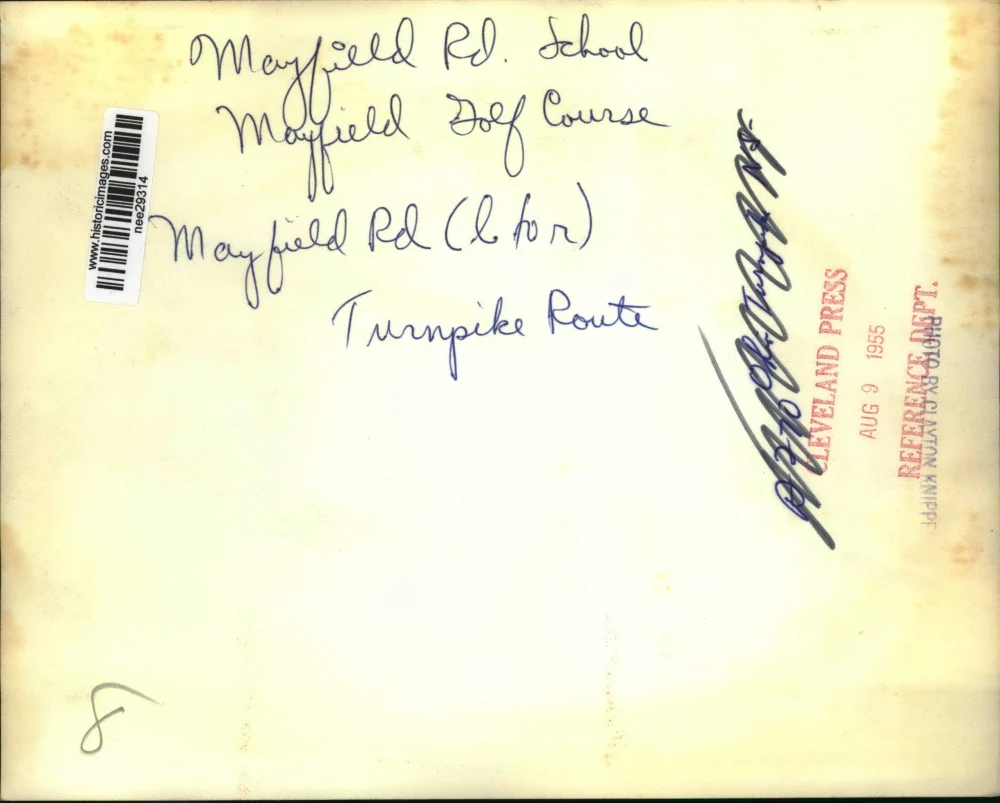 Mayfield Rd. School
Mayfield Golf Course
Mayfield Rd (l to r)
Turnpike Route
www.historicimages.com
nee29314
Ohio Turnpike
CLEVELAND PRESS
AUG 9 1955
REFERENCE DEPT.
PHOTO BY CLAYTON KNIPPE
8